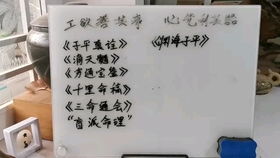 工欲善其事 必先利其器
《子平真诠》 《渊海子平》
《滴天髓》
《穷通宝鉴》
《千里命稿》
《三命通会》
"盲派命理"